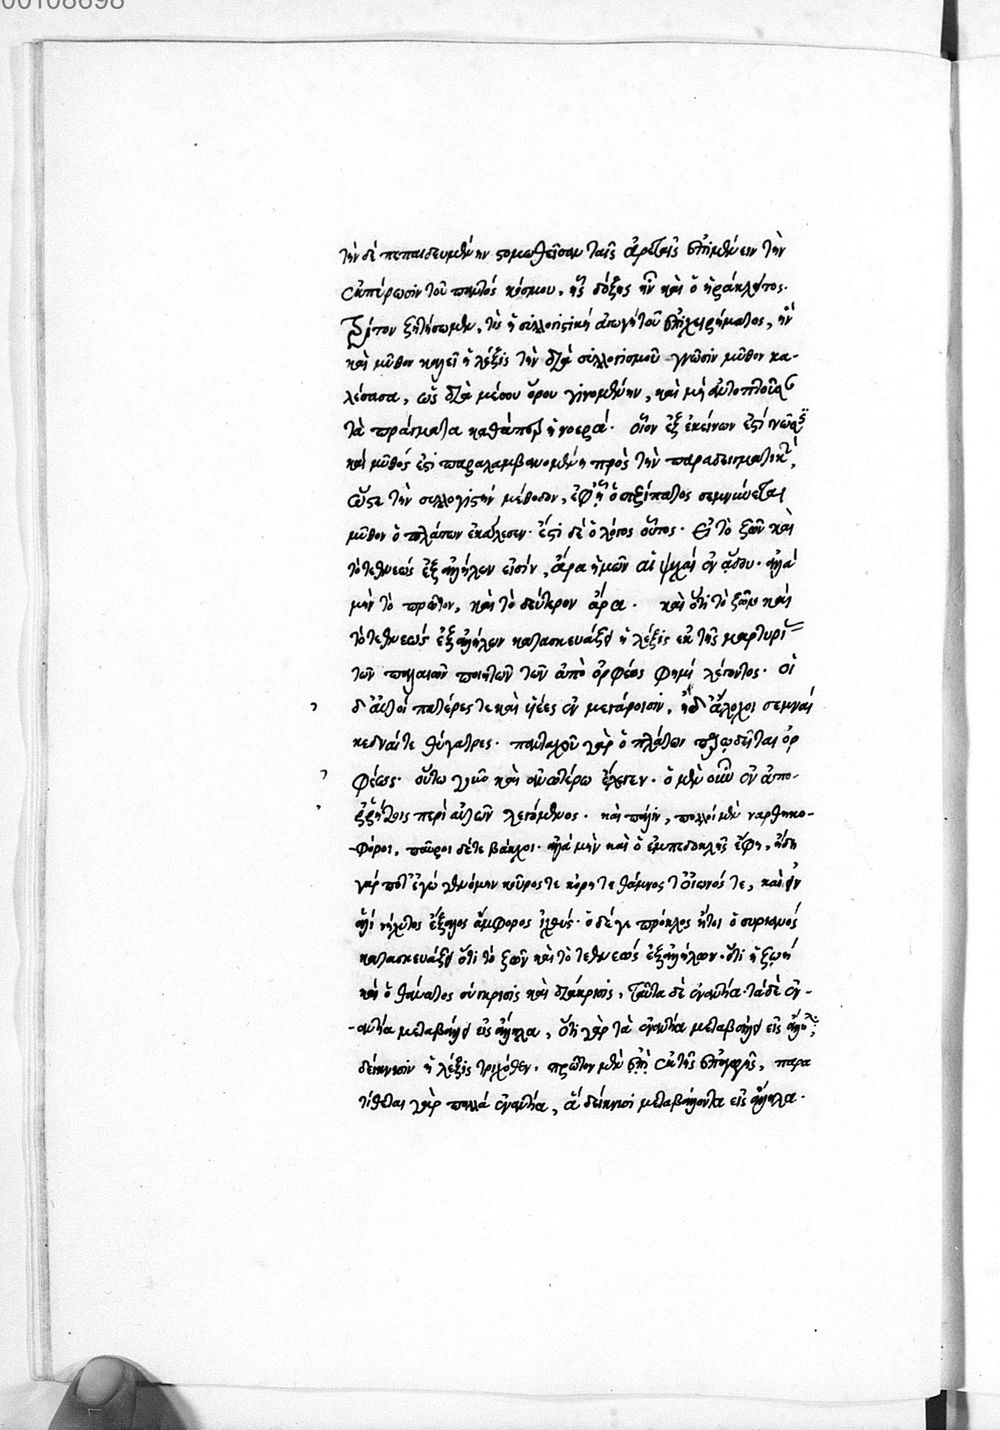 00108698
τὴν δὲ πεπαιδευμένην στομωθεῖσαν ταῖς ἀρεταῖς ἐπιμένειν τὴν
ἐκπύρωσιν τοῦ παντός κόσμου, ἧς δόξης ἦν καὶ ὁ ἡράκλειτος.
Τρίτον ζητήσωμεν, τίς ἡ συλλογιστικὴ ἀγωγὴ τοῦ ἐπιχειρήματος, ἣν
καὶ μῦθον καλεῖ ἡ λέξις τὴν διὰ συλλογισμοῦ γνῶσιν μῦθον κα-
λέσασα, ὡς διὰ μέσου ὅρου γινομένην, καὶ μὴ αὐτοπτοῦσαν
τὰ πράγματα καθάπερ ἡ νοερά. οἷον ἐξ ἐκείνων ἐστί
καὶ μῦθός ἐστι παραλαμβανομένη πρὸς τὴν παραδειγματικήν,
ὥστε τὴν συλλογιστικὴν μέθοδον, ἐφ' ᾗ ὁ περίπατος σεμνύνεται
μῦθον ὁ πλάτων ἐκάλεσεν. ἔστι δὲ ὁ λόγος οὗτος. Εἰ τὸ ζῶν καὶ
τὸ τεθνεώς ἐξ ἀλλήλων εἰσίν, ἆρα ἡμῶν αἱ ψυχαί ἐν ᾅδου. ἀλλά
μὴν τὸ πρῶτον, καὶ τὸ δεύτερον ἄρα. καὶ ὅτι τὸ ζῶν καὶ
τὸ τεθνεώς ἐξ ἀλλήλων κατασκευάζει ἡ λέξις ἐκ τῆς μαρτυρί
τῶν παλαιῶν ποιητῶν τῶν ἀπὸ ὀρφέως φημί λέγοντος. οἱ
δ' αὐτοί πατέρες τε καὶ υἱέες ἐν μεγάροισιν, ἠδ' ἄλοχοι σεμναί
κεδναί τε θύγατρες. πανταχοῦ γὰρ ὁ πλάτων παρῳδεῖται ὀρ
φέως. οὕτω γοῦν καὶ ἀνωτέρω ἔλεγεν. ὁ μὲν οὖν ἐν ἀπο-
ρρήτοις περὶ αὐτῶν λεγόμενος. καὶ πάλιν, πολλοί μὲν ναρθηκο-
-φόροι, παῦροι δέ τε βάκχοι. ἀλλά μὴν καὶ ὁ ἐμπεδοκλῆς ἔφη, ἤδη
γάρ ποτ' ἐγώ γενόμην κοῦρος τε κόρη τε θάμνος τ' οἰωνός τε, καὶ ἐν
ἁλί νήχυτος ἔξαλος ἄμφορος ἰχθύς. ὁ δέ γε πρόκλος ἤτοι ὁ συριανός
κατασκευάζει ὅτι τὸ ζῶν καὶ τὸ τεθνεώς ἐξ ἀλλήλων. ὅτι ἡ ζωή
καὶ ὁ θάνατος σύγκρισις καὶ διάκρισις, ταῦτα δὲ ἐναντία. τὰ δὲ ἐν-
-αντία μεταβάλλει εἰς ἄλληλα, ὅτι γὰρ τὰ ἐναντία μεταβάλλει εἰς ἄλληλα,
δείκνυσιν ἡ λέξις τριχόθεν. πρῶτον μὲν ἐκ τῆς ἐπαγωγῆς, παρα
τίθεται γὰρ πολλά ἐναντία, ἅ δείκνυσι μεταβάλλοντα εἰς ἄλληλα.